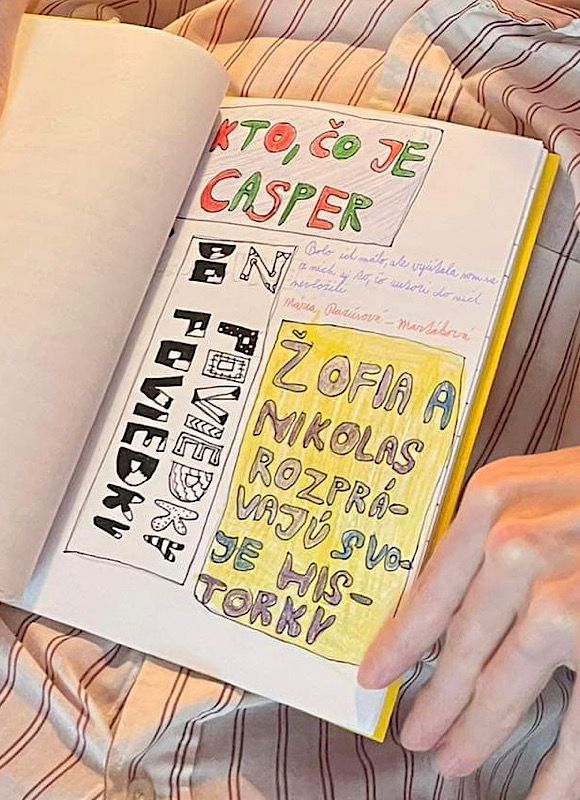 KTO, ČO JE
CASPER
Z POVIEDKY
DO POVIEDKY
Bolo ich málo, ale vyčítala som si
z nich aj to, čo autori do nich
nevložili
Mária Rázusová - Martáková
ŽOFIA A
NIKOLAS
ROZPRÁ-
VAJÚ SVO-
JE HIS-
TORKY